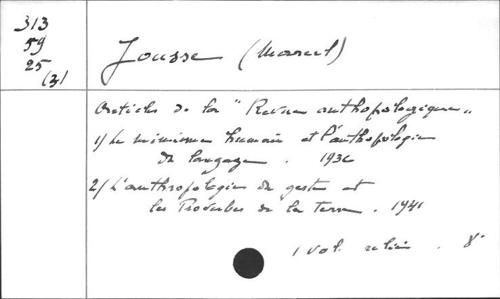 313
59
25
(3)
Jousse (Marcel)
Articles de la "Revue anthropologique"
1/ Le mimisme humain et l'anthropologie
du langage . 1936
2/ L'anthropologie du geste et
les Proverbes de la terre . 1941
1 vol. relié . 8°